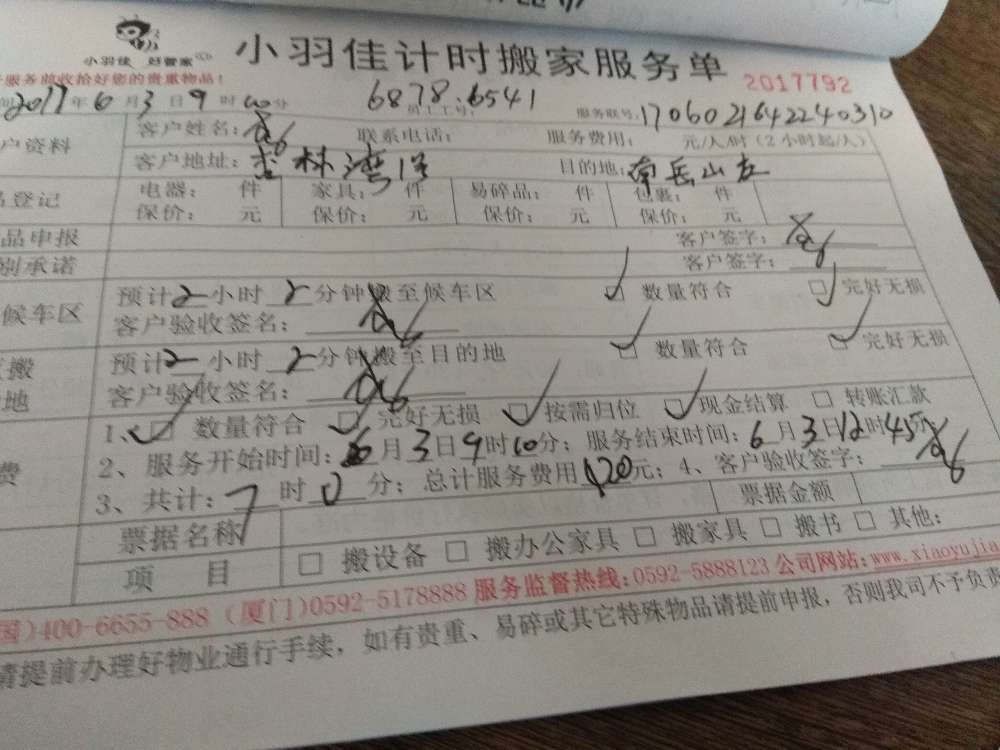 小羽佳 好管家
小羽佳计时搬家服务单
服务前收拾好您的贵重物品！
2017792
间2017年6月3日9时00分 6878:6541 服务联号:1706021642240310
户资料 客户姓名: 联系电话: 服务费用: 元/人/时(2小时起/人)
客户地址: 杏林湾 目的地: 南岳山庄
品登记 电器: 件 家具: 件 易碎品: 件 包裹: 件
保价: 元 保价: 元 保价: 元 保价: 元
品申报 客户签字:
别承诺 客户签字:
候车区 预计2小时2分钟搬至候车区 数量符合 完好无损
客户验收签名:
搬 预计2小时2分钟搬至目的地 数量符合 完好无损
地 客户验收签名:
1、 数量符合 完好无损 按需归位 现金结算 转账汇款
费 2、服务开始时间:6月3日9时00分; 服务结束时间:6月3日12时45分
3、共计:7时0分; 总计服务费用420元; 4、客户验收签字:
票据名称 票据金额
项 目 搬设备 搬办公家具 搬家具 搬书 其他:
国)400-6655-888 (厦门)0592-5178888 服务监督热线:0592-5888123 公司网站:www.xiaoyujia
请提前办理好物业通行手续，如有贵重、易碎或其它特殊物品请提前申报，否则我司不予负责